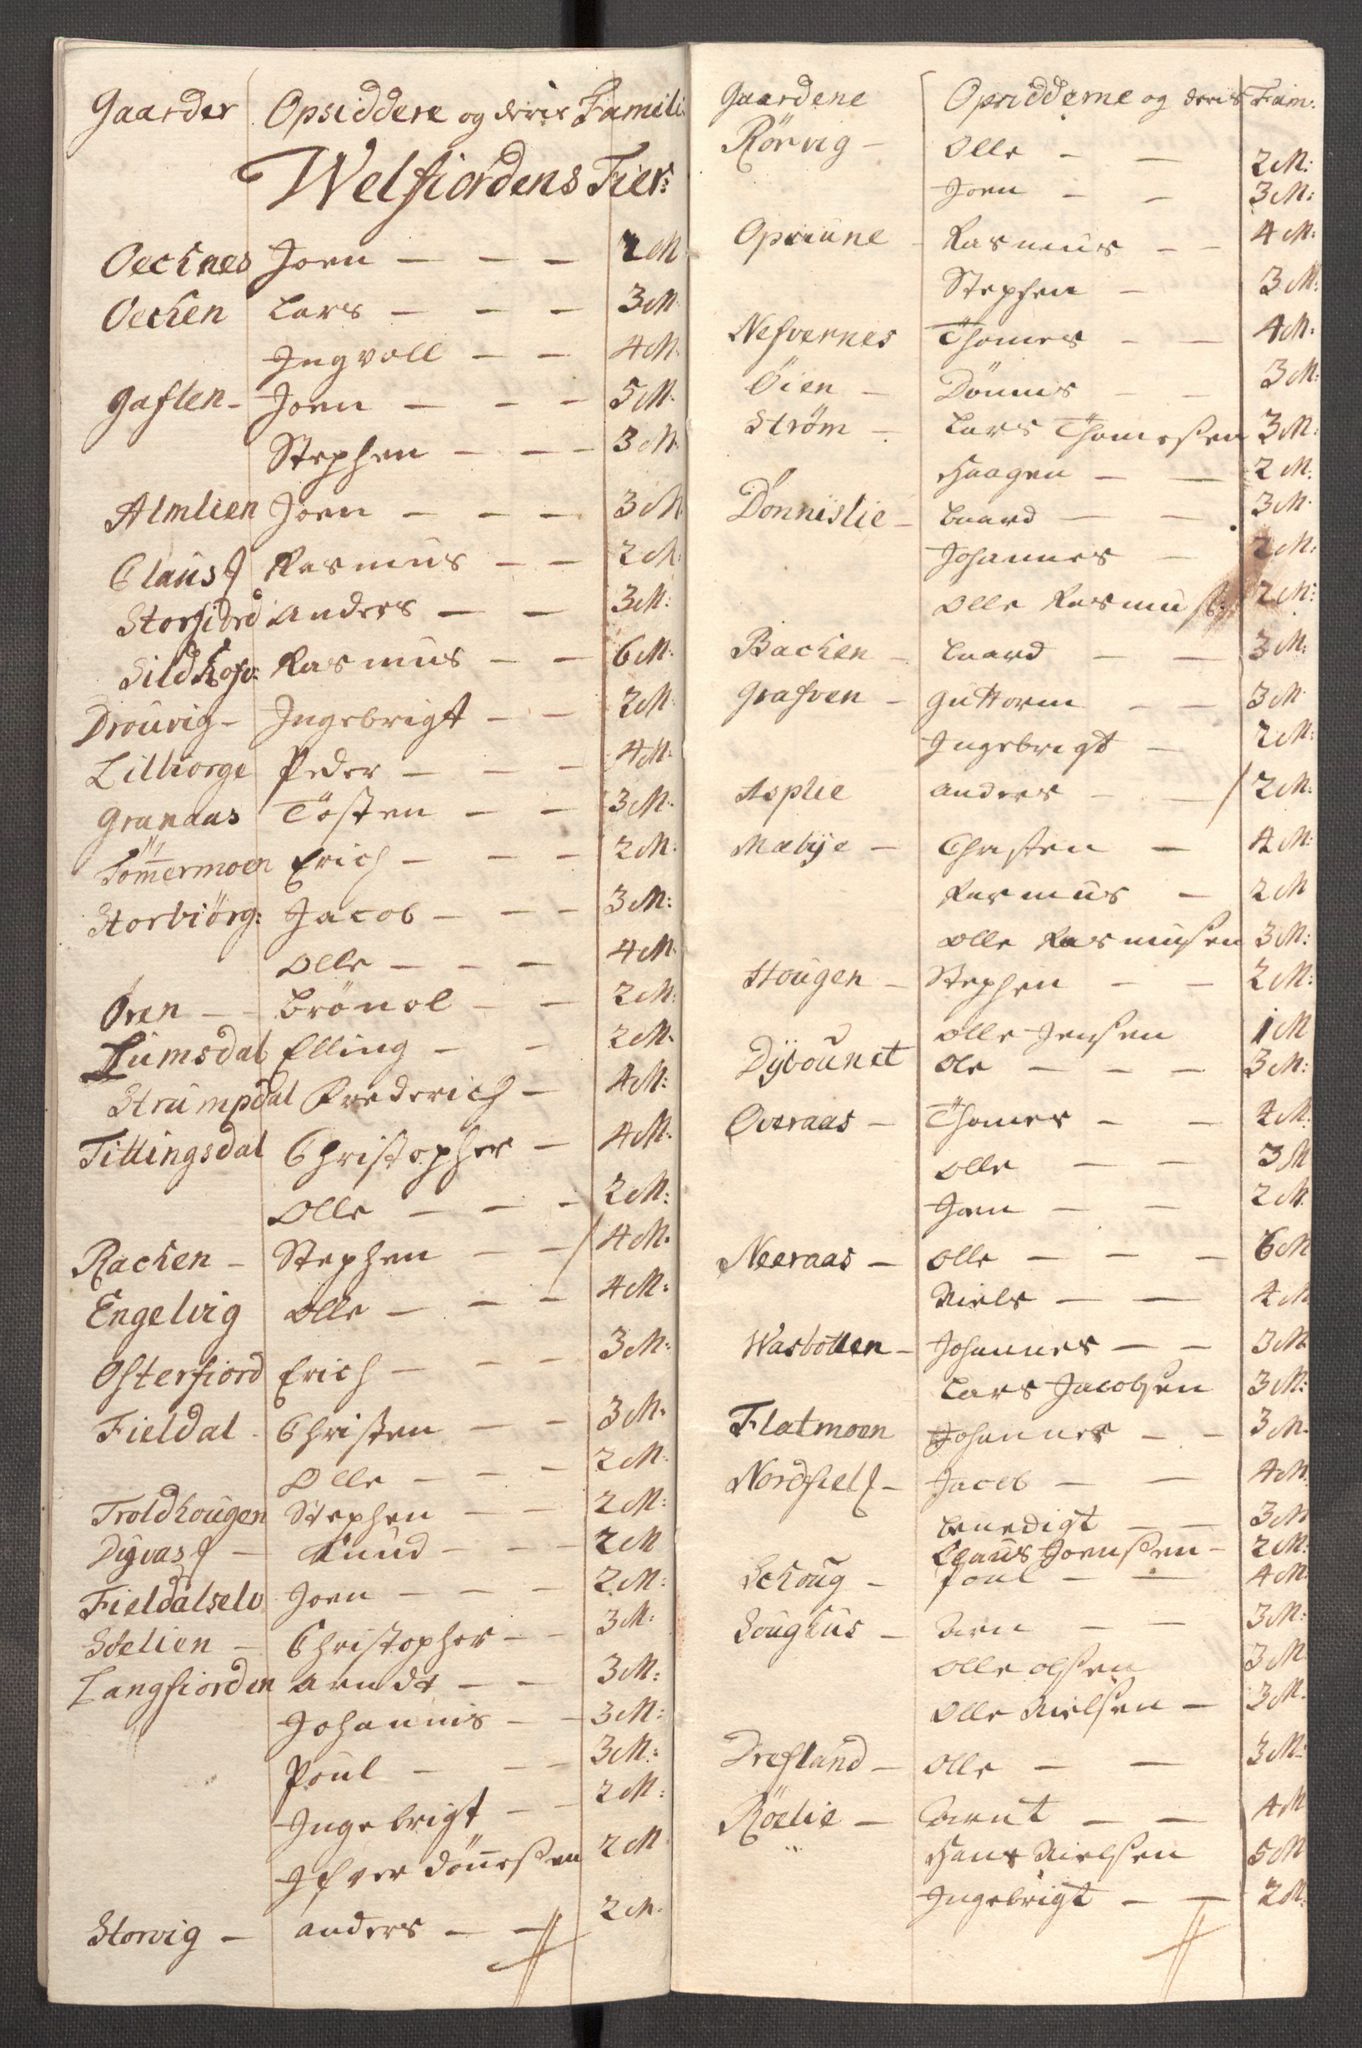 Gaarder Opsiddere og deris Famili
Welfiordens Fier:
Oecknes Joen — — — 2 M
Oecken Lars — — — 3 M
Ingvoll — — 4 M.
Gaften — Joen — — — 5 M.
Stephen — — — 3 M.
Almlien Joen — — — 3 M
Clausf Rasmus — — 2 M.
Storfiord Anders — — 3 M:
Sildhofv: Rasmus — — 6 M.
Drouvig — Ingebrigt — — 2 M.
Lilborge Peder — — — 4 M.
Granaas Tösten — — 3 M.
Tömmermoen Erich — — — 2 M.
Storbiörg: Jacob — — — 3 M:
Olle — — — 4 M.
Øren — Brönol — — 2 M:
Lumsdal Elling — — 2 M.
Strumpdal Frederich — 4 M:
Tittingsdal Christopher — 4 M.
Olle — — — 2 M:
Racken — Stephen — — / 4 M.
Engelvig Olle — — — 4 M:
Osterfiord Erich — — — 3 M:
Fieldal — Christen — — 3 M.
Olle — — — 2 M.
Troldhougen Stephen — — 2 M:
Dyvasf — Knud — — 2 M
Fieldalselv Joen — — 2 M:
Sdelien — Christopher — — 3 M:
Langfiorden Arndt — — 3 M:
Johannis — — 3 M:
Poul — — — 3 M:
Ingebrigt — — 2 M:
Ifver Dönnesen 2 M
Storvig — Anders — — 2 M.
Gaardene Opsidderne og deris Fam:
Rörvig — Olle — — 2 M:
Joen — — 3 M:
Opsiune — Rasmus — — 4 M:
Stephen — 3 M:
Nefvernes Thomes — — 4 M:
Öien — Dönnis — — 3 M:
Ström — Lars Thomesen 3 M:
Haagen — — 2 M.
Dönnislie — Baard — — 3 M.
Johannes — 2 M:
Olle Rasmus: 2 M:
Backen — Baard — — 3 M:
Grafven — Guttorm — — 3 M
Ingebrigt — 2 M:
Asplie Anders — — / 2 M.
Mæbye — Chresten — 4 M:
Rasmus — 2 M
Olle Rasmusen 3 M:
Hougen — Stephen — — 2 M:
Olle Jensen 1 M
Dybounet Ole — — — 3 M:
Overaas — Thomes — — 4 M.
Olle — — 3 M
Joen — — 2 M.
Neeraas — Olle — — — 6 M
Niels — — 4 M
Wasbotten — Johannes — — 3 M
Lars Jacobsen 3 M:
Flatmoen Johannes — — 3 M.
Nordfielf — Jacob — — 4 M.
Benedigt — — 3 M
Claus Joensen — 2 M:
Schoug — Poul — — 4 M:
Soughus — Arn — — 3 M:
Olle Olsen 3 M
Olle Nielsen — 3 M.
Drefland — Olle — — 3 M:
Röelie — Arnt — — 4 M
Hans Nielsen 5 M
Ingebrigt — — 2 M.